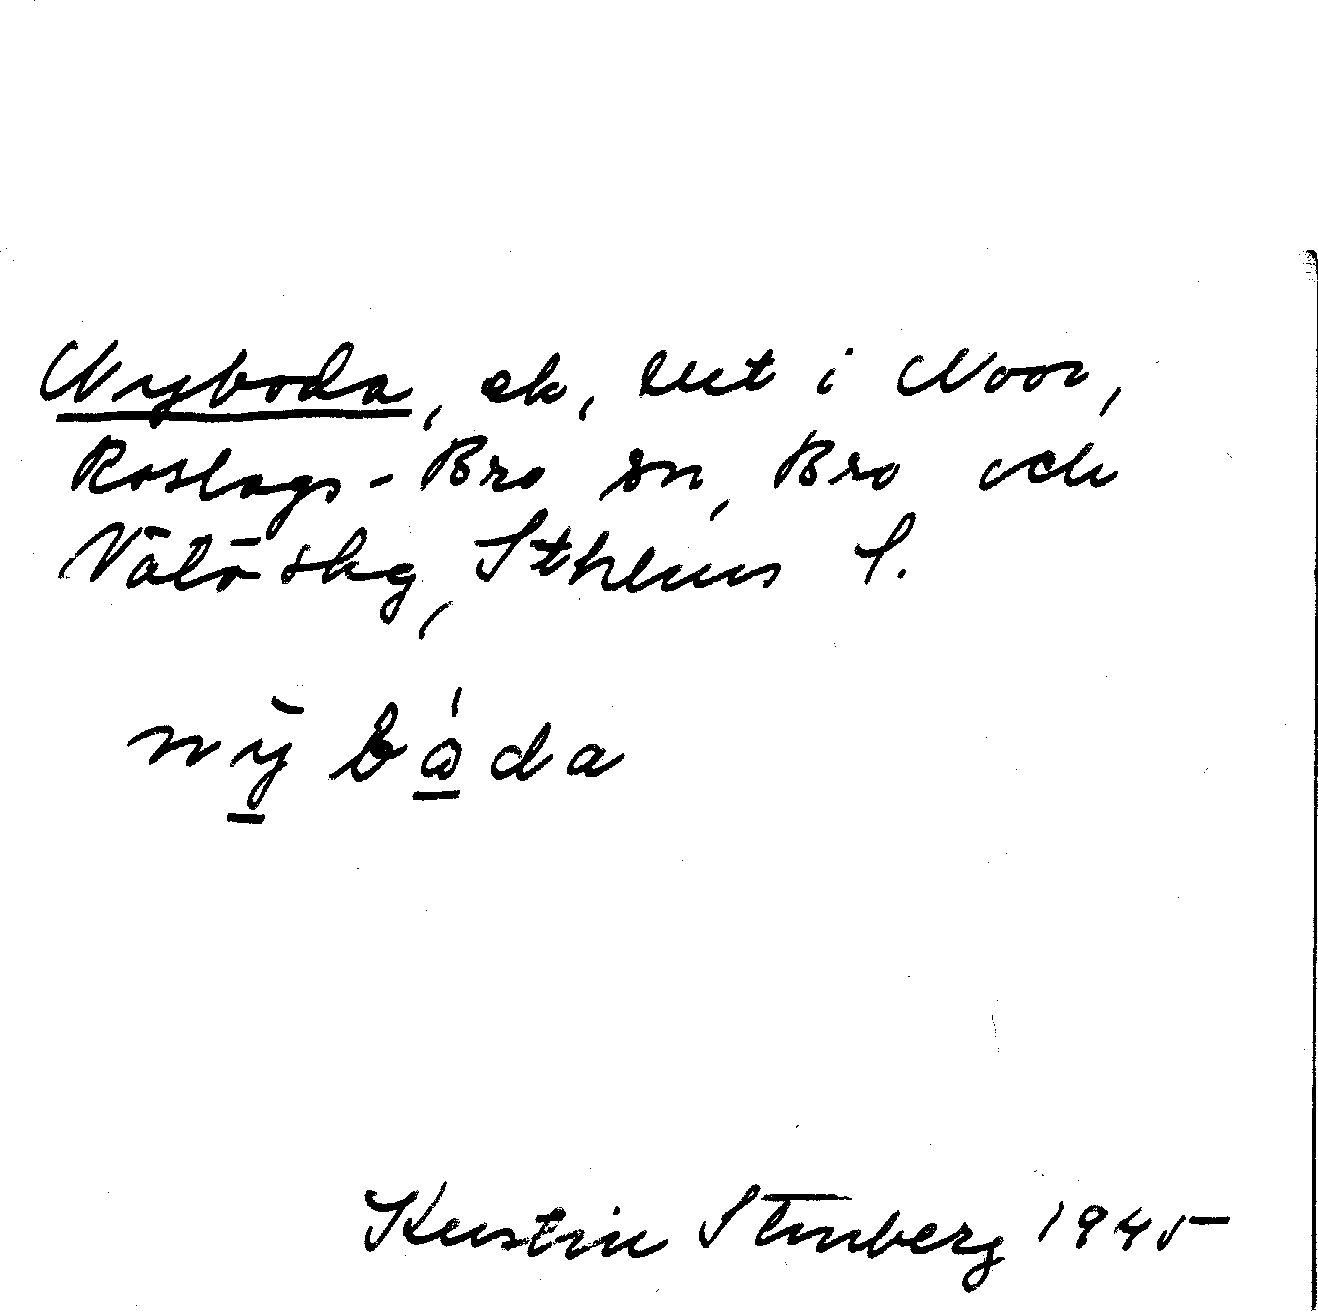 Nyboda, ek, beit i Noor,
Roslags-Bro sn, Bro och
Vätö skg, Sthlms l.
nỳ bǻda
Kerstin Stenberg 1945